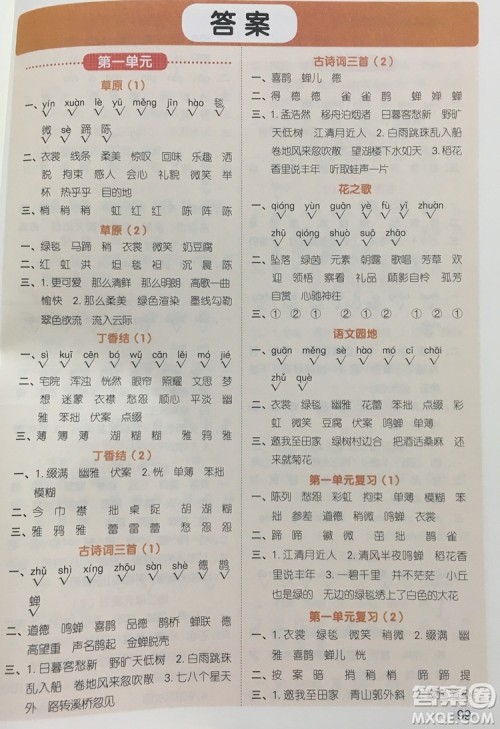 答案
第一单元
草原（1）
一、yín xuàn lè yǔ měng jīn hào 毯
微 sè 蹄 陈
二、衣裳 线条 柔美 惊叹 回味 乐趣 洒
脱 拘束 感人 会心 礼貌 微笑 举
杯 热乎乎 目的地
三、稍 稍 梢 虹 红 虹 陈 阵 陈
草原（2）
一、绿毯 马蹄 稍稍 衣裳 微笑 奶豆腐
二、红 虹 洪 坦 毯 袒 沉 晨 陈
三、1.更可爱 那么清鲜 那么明朗 高歌一曲
愉快 2.那么美 绿色渲染 墨线勾勒
翠色欲流 流入云际
丁香结（1）
一、sì kuī cēn bó wǔ cān lěi mó jié
二、宅院 浑浊 恍然 眼帘 照耀 文思 梦
想 幽雅 愁怨 模糊 平淡 单薄 幽
雅 笨拙 伏案 点缀
三、薄 薄 薄 湖 糊 糊 雅 鸦 雅
丁香结（2）
一、1.缀满 幽雅 伏案 2.恍 单薄 笨拙
模糊
二、今 巾 襟 拙 桌 捉 胡 湖 糊
三、雅 鸦 雅 蕾 雷 蕾 歉 欺 歉
古诗词三首（1）
一、jiàn zhǔ dé què chán shè 德 鹊
蝉
二、道德 鸣蝉 喜鹊 品德 鹊桥 蝉联 德
高望重 声名鹊起 金蝉脱壳
三、1.日暮客愁新 野旷天低树 2.白雨跳珠
乱入船 卷地风来忽吹散 3.七八个星天
外 路转溪桥忽见
古诗词三首（2）
一、喜鹊 蝉儿 德
二、得 德 德 雀 雀 鹊 婵 蝉 蝉
三、1.孟浩然 移舟泊烟渚 日暮客愁新 野
旷天低树 江清月近人 2.白雨跳珠乱入船
卷地风来忽吹散 望湖楼下水如天 3.稻花
香里说丰年 听取蛙声一片
花之歌
一、qióng yùn guàn yè fù yǐ zhuàn
zhāo qióng shuò suō zhāo
二、坠落 绿茵 元素 朝露 歌唱 芳草 欢
迎 领悟 唇看 心扉 顾影自怜 孤芳
自赏 心驰神往
三、① ② ① ② ① ②
语文园地
一、guān měng shà yǔ mò cháng
zhǔ què
二、衣裳 绿毯 幽雅 花蕾 笨拙 点缀
三、邀我至田家 绿树村边合 把酒话桑麻 还
来就菊花
第一单元复习（1）
一、陈列 愁怨 彩虹 拘束 单薄 衣襟
参差 道德 稍微 鸣蝉 笨拙 喜鹊
二、蹄 蹄 啼 徽 微 微 苗 茁 鹊 鹊
三、1.江清月近人 2.清风半夜鸣蝉 稻花香
里说丰年 3.一碧千里 并不茫茫 小丘
也是绿的 无边的绿毯绣上了白色的大花
第一单元复习（2）
一、衣裳 绿毯 微笑 缀满 幽雅 伏案
喜鹊 蝉儿 恍
二、按 案 暗 捎 稍 梢 蹄 蹄 提
三、1.邀我至田家 青山郭外斜